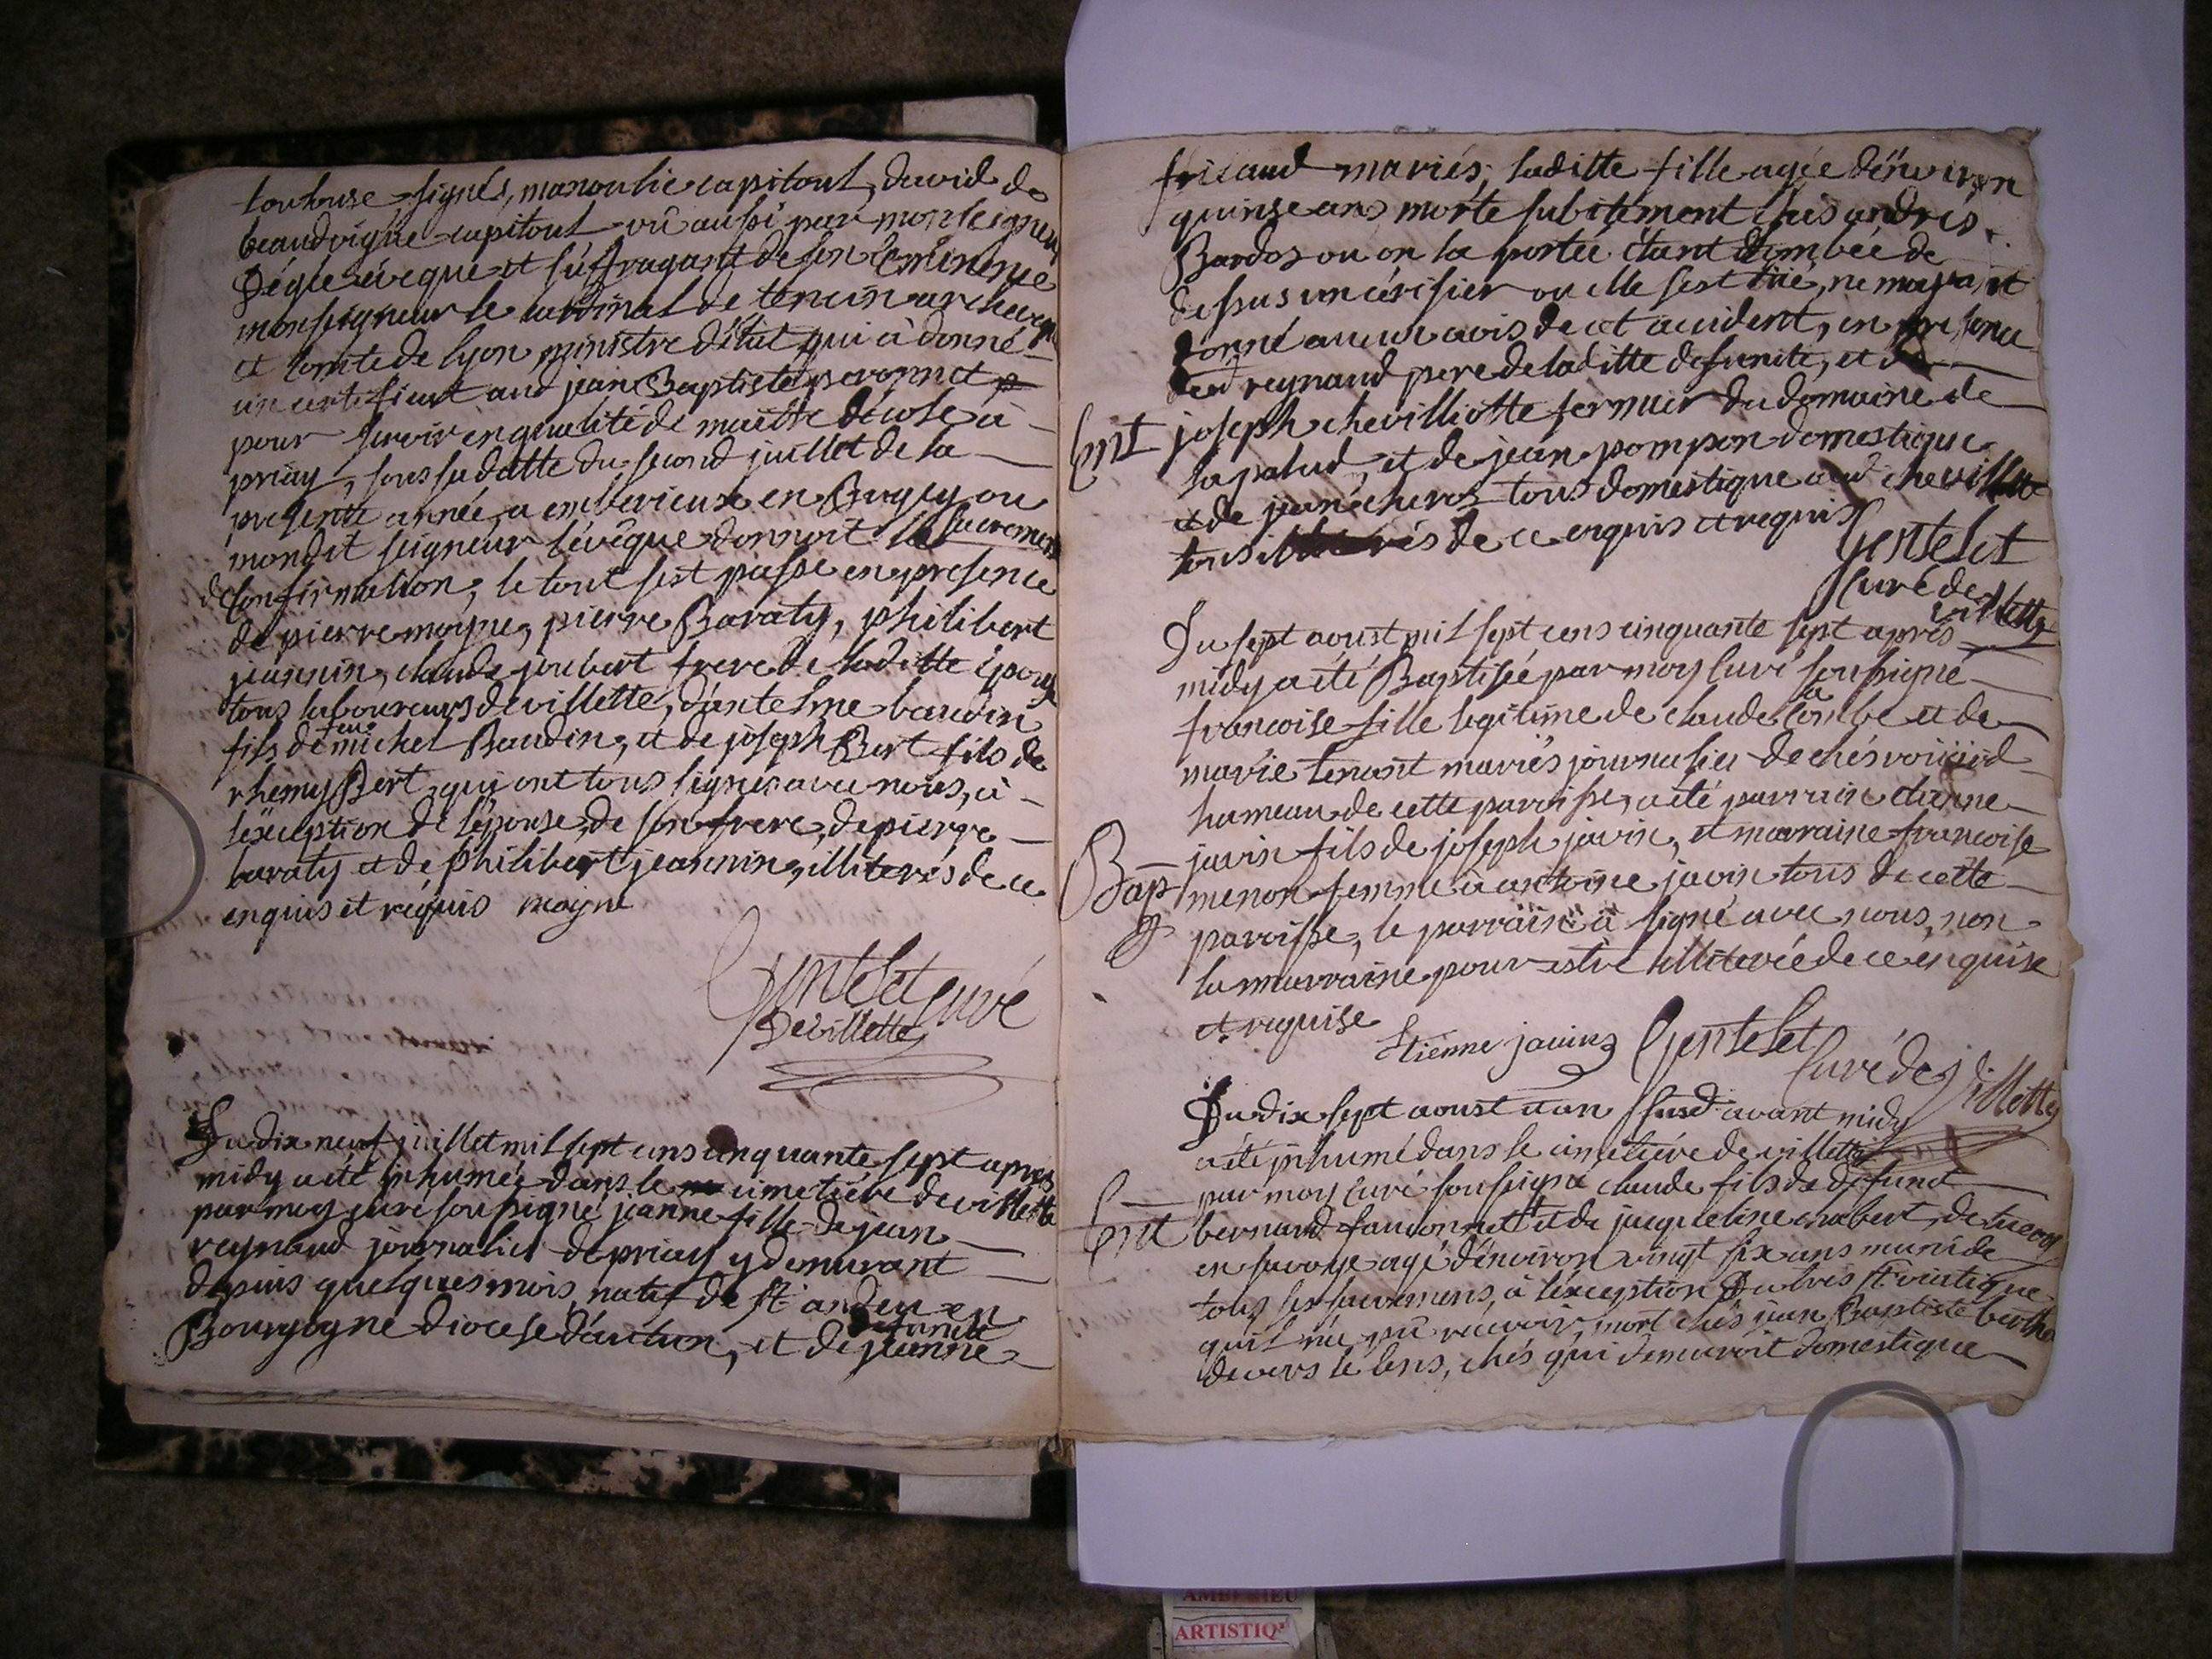 toulouse, signés, manoulie capitoul, david de
beaudrigue capitoul vû aussi par monseigneur
Dégle évêque et suffragant de son Eminence
monseigneur le cardinal de tencin archeveque
et Comte de lyon ministre d'état qui à donné
un certificat aud jean Baptiste peronnet
pour servir en qualité de maitre décole à
priay, sous sa datte du second juillet de la
presente année, a amberieux en Bugey ou
mondit seigneur l'évêque donnoit le sacrement
de Confirmation; le tout s'est passé en presence
de pierre moyne, pierre Baraty, philibert
jeannin, claude joubert frere de laditte épouse
tous laboureurs de villette, d'antelme baudin
fils de feu michel Baudin, et de joseph Bert fils de
rhemy Bert, qui ont tous signés avec nous, à
l'exception de l'épouse, de son frere, de pierre
baraty et de philibert jeannin, illiterés de ce
enquis et requis moyne
Gentelet curé
De villette
Du dix neuf juillet mil sept cens cinquante sept apres
midy a été inhumée dans le cimetiére de villette
par moy curé soussigné jeanne fille de jean
reynaud journalier de priay y demeurant
depuis quelques mois, natif de st andeux en
Bourgogne diocese d'autun, et de defunte jeanne
fricaud mariés, laditte fille agée d'environ
quinse ans morte subitement chés andrés
Bardos ou on la portée étant tombée de
dessus un cérisier ou elle s'est tué, ne m'ayant
donné aucun avis de cet accident, en presence
dud reynaud pere de laditte defunte, et de
Ent joseph chevilliotte fermier du domaine de
la palud, et de jean pompon domestique
et de jean tous domestique aud chevillotte
tous illiterés de ce enquis et requis
Gentelet
Curé de
villette
Du sept aoust mil sept cens cinquante sept aprés
midy a été Baptisée par moy Curé soussigné
francoise fille legitime de claude la Combe et de
marie tenant mariés journalier de chés
hameau de cette paroisse, a été parrain etienne
javin fils de joseph javin, et marraine francoise
Bap menon femme à antoine javin tous de cette
paroisse, le parrain à signé avec nous, non
la marraine pour estre illiterée de ce enquise
et requise
Etienne javin Gentelet
Curé de Villette
Du dix sept aoust et an susd avant midy
a été inhumé dans le cimetiére de villette
par moy curé soussigné claude fils de defunct
Ent bernard fauconnet et de jacqueline
en savoye agé d'environ vingt six ans muni de
tous ses sacremens, à l'exception du tres st viatique
quil n'a pû recevoir, mort chés jean Baptiste
devers le lens, chés qui demeuroit domestique
AMBERIEU
ARTISTIQ